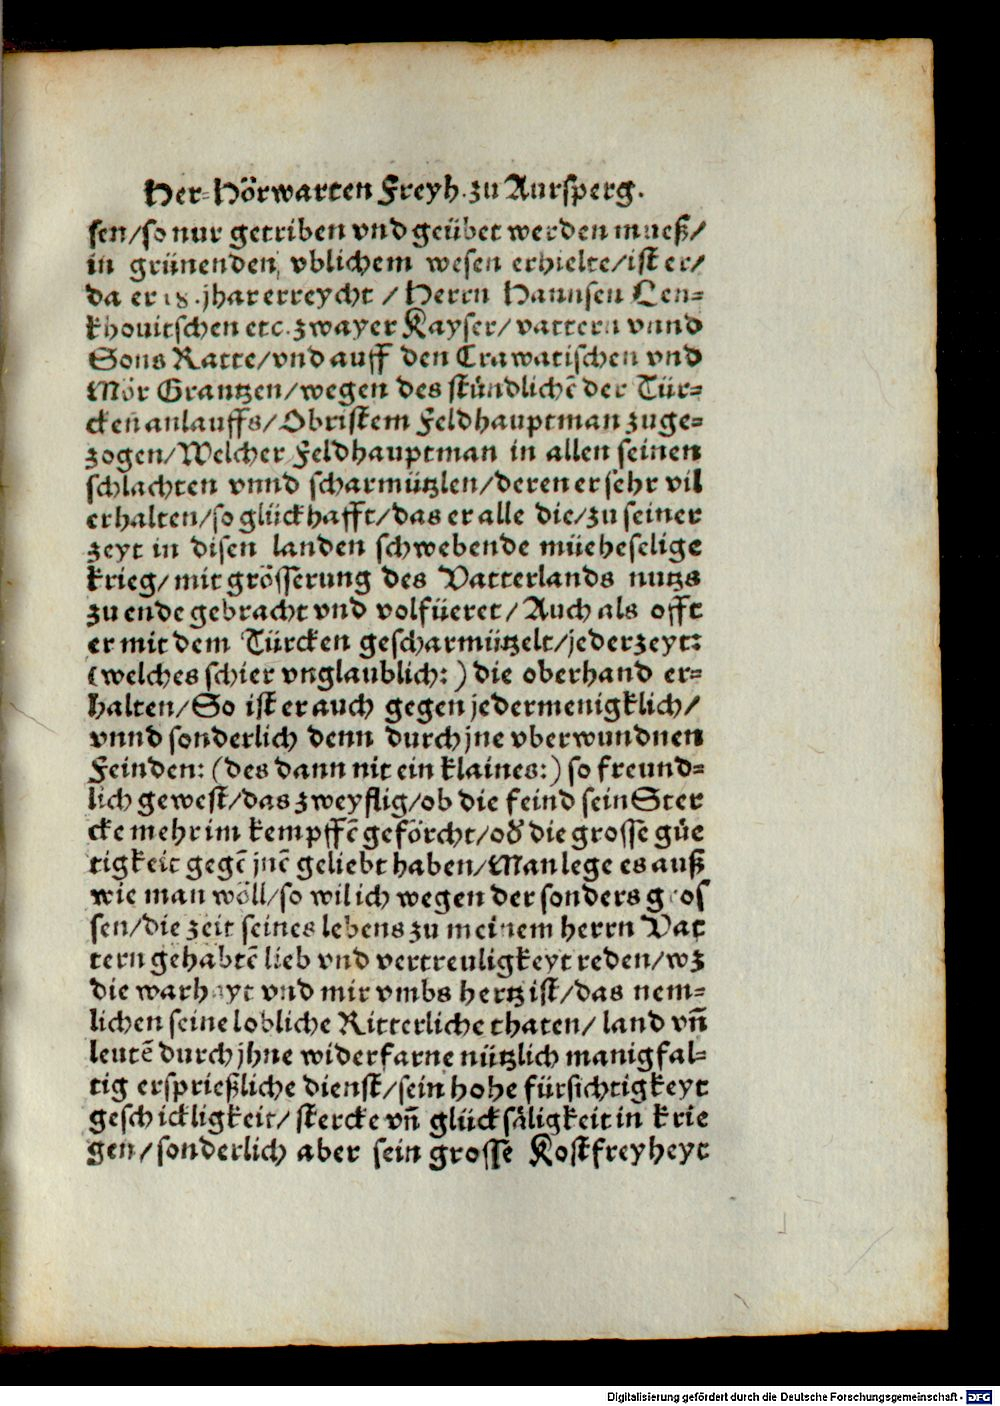 Her-Hörwarten Freyh. zu Aursperg.
sen/so nur getriben vnd geübet werden mueß/
in grünenden, vblichem wesen erhielte/ist er/
da er 18. jhar erreycht / Herrn Hannsen Len-
khouitschen etc. zwayer Kayser/vattern vnnd
Sons Ratte/vnd auff den Crawatischen vnd
Mör Grantzen/wegen des stündlichē der Tür-
cken anlauffs/Obristem Feldhauptman zuge-
zogen/Welcher Feldhauptman in allen seinen
schlachten vnnd scharmützlen/deren er sehr vil
erhalten/so glückhafft/das er alle die/zu seiner
zeyt in disen landen schwebende müeheselige
krieg/mit grösserung des Vatterlands nutzs
zu ende gebracht vnd volfüeret/Auch als offt
er mit dem Türcken gescharmützelt/jederzeyt:
(welches schier vnglaublich:) die oberhand er-
halten/So ist er auch gegen jedermenigklich/
vnnd sonderlich denn durch jne vberwundnen
Feinden: (des dann nit ein klaines:) so freund-
lich gewest/das zweyflig/ob die feind sein Ster
cke mehr im kempffē geförcht/od die grosse güe
tigkeit gegē jnē geliebt haben/Man lege es auß
wie man wöll/so wil ich wegen der sonders gros
sen/die zeit seines lebens zu meinem herrn Vat
tern gehabtē lieb vnd vertreuligkeyt reden/wz
die warhayt vnd mir vmbs hertz ist/das nem-
lichen seine lobliche Ritterliche thaten/ land vn̄
leutē durch jhne widerfarne nützlich manigfal-
tig ersprießliche dienst/sein hohe fürsichtigkeyt
geschickligkeit/ stercke vn̄ glücksäligkeit in krie
gen/sonderlich aber sein grosse Kostfreyheyt
Digitalisierung gefördert durch die Deutsche Forschungsgemeinschaft - DFG